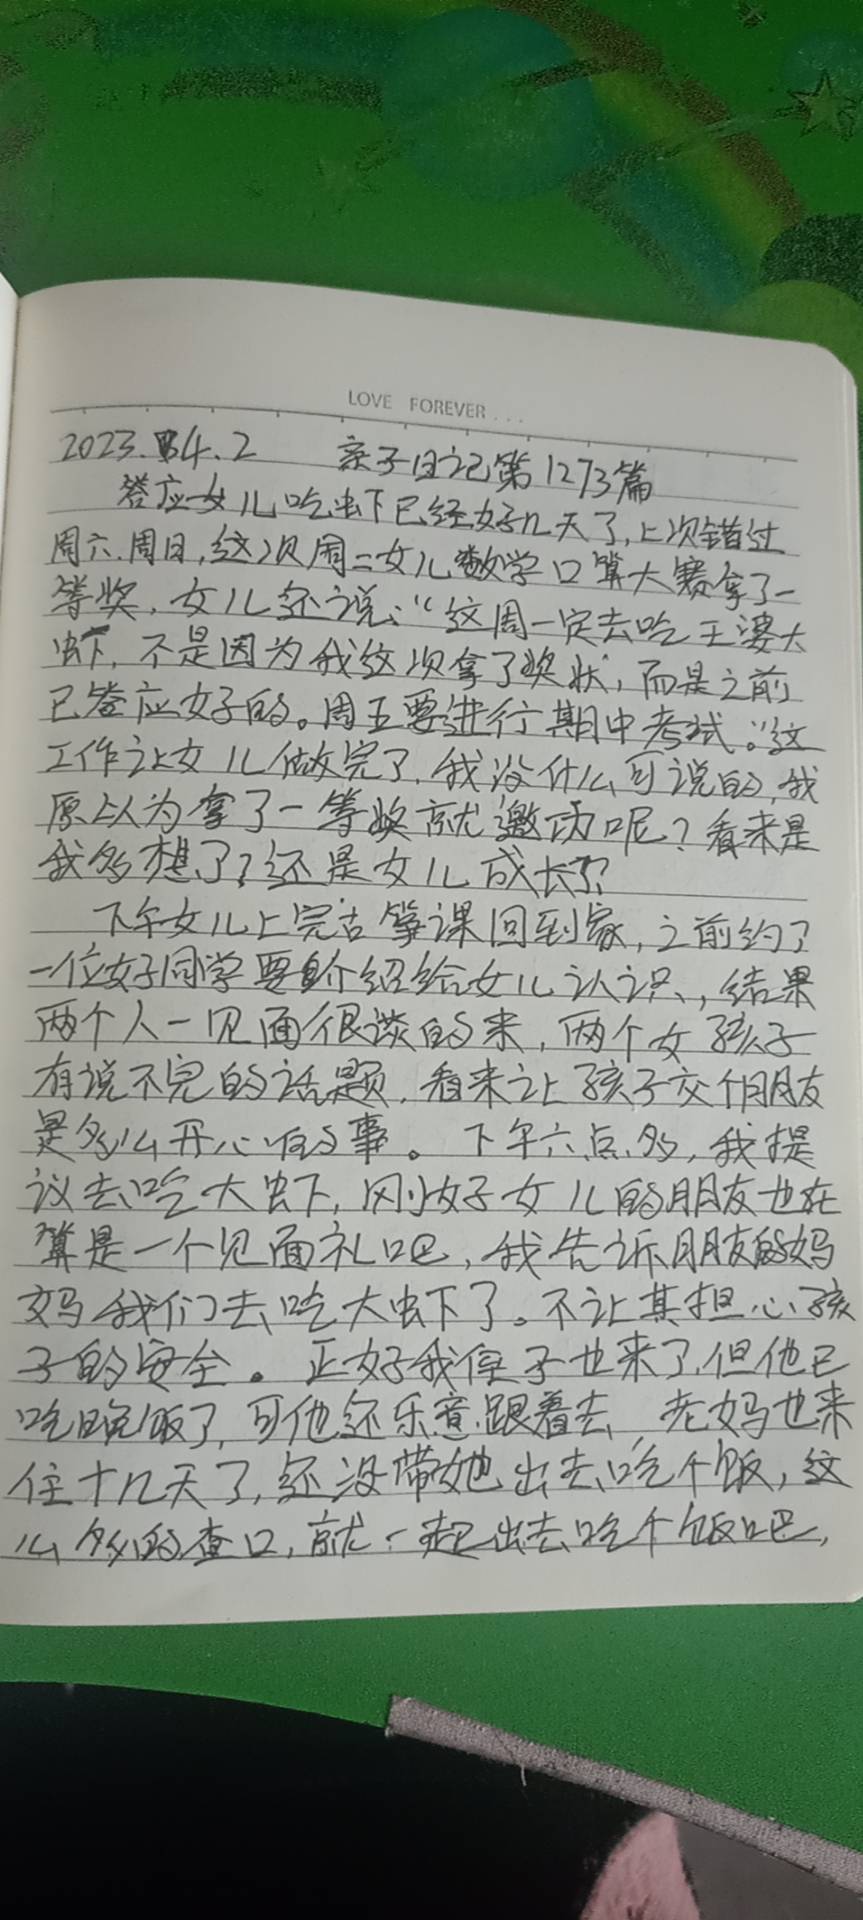 LOVE FOREVER...
2023.4.2 亲子日记第1273篇
答应女儿吃虾已经好几天了,上次错过
周六.周日,这次周二女儿数学口算大赛拿了一
等奖,女儿还说:“这周一定去吃王婆大
虾,不是因为我这次拿了奖状,而是之前
已答应好的。周五要进行期中考试。”这
工作让女儿做完了,我没什么可说的,我
原以为拿了一等奖就邀功呢?看来是
我多想了?还是女儿成长了?
下午女儿上完古筝课回到家,之前约了
一位好同学要介绍给女儿认识,结果
两个人一见面很谈的来,两个女孩子
有说不完的话题,看来让孩子交个朋友
是多么开心的事。下午六点多,我提
议去吃大虾,刚好女儿的朋友也在
算是一个见面礼吧,我告诉朋友的妈
妈我们去吃大虾了。不让其担心孩
子的安全。正好我侄子也来了,但他已
吃晚饭了,可他还乐意跟着去,老妈也来
住十几天了,还没带她出去吃个饭,这
么多的借口,就一起出去吃个饭吧,